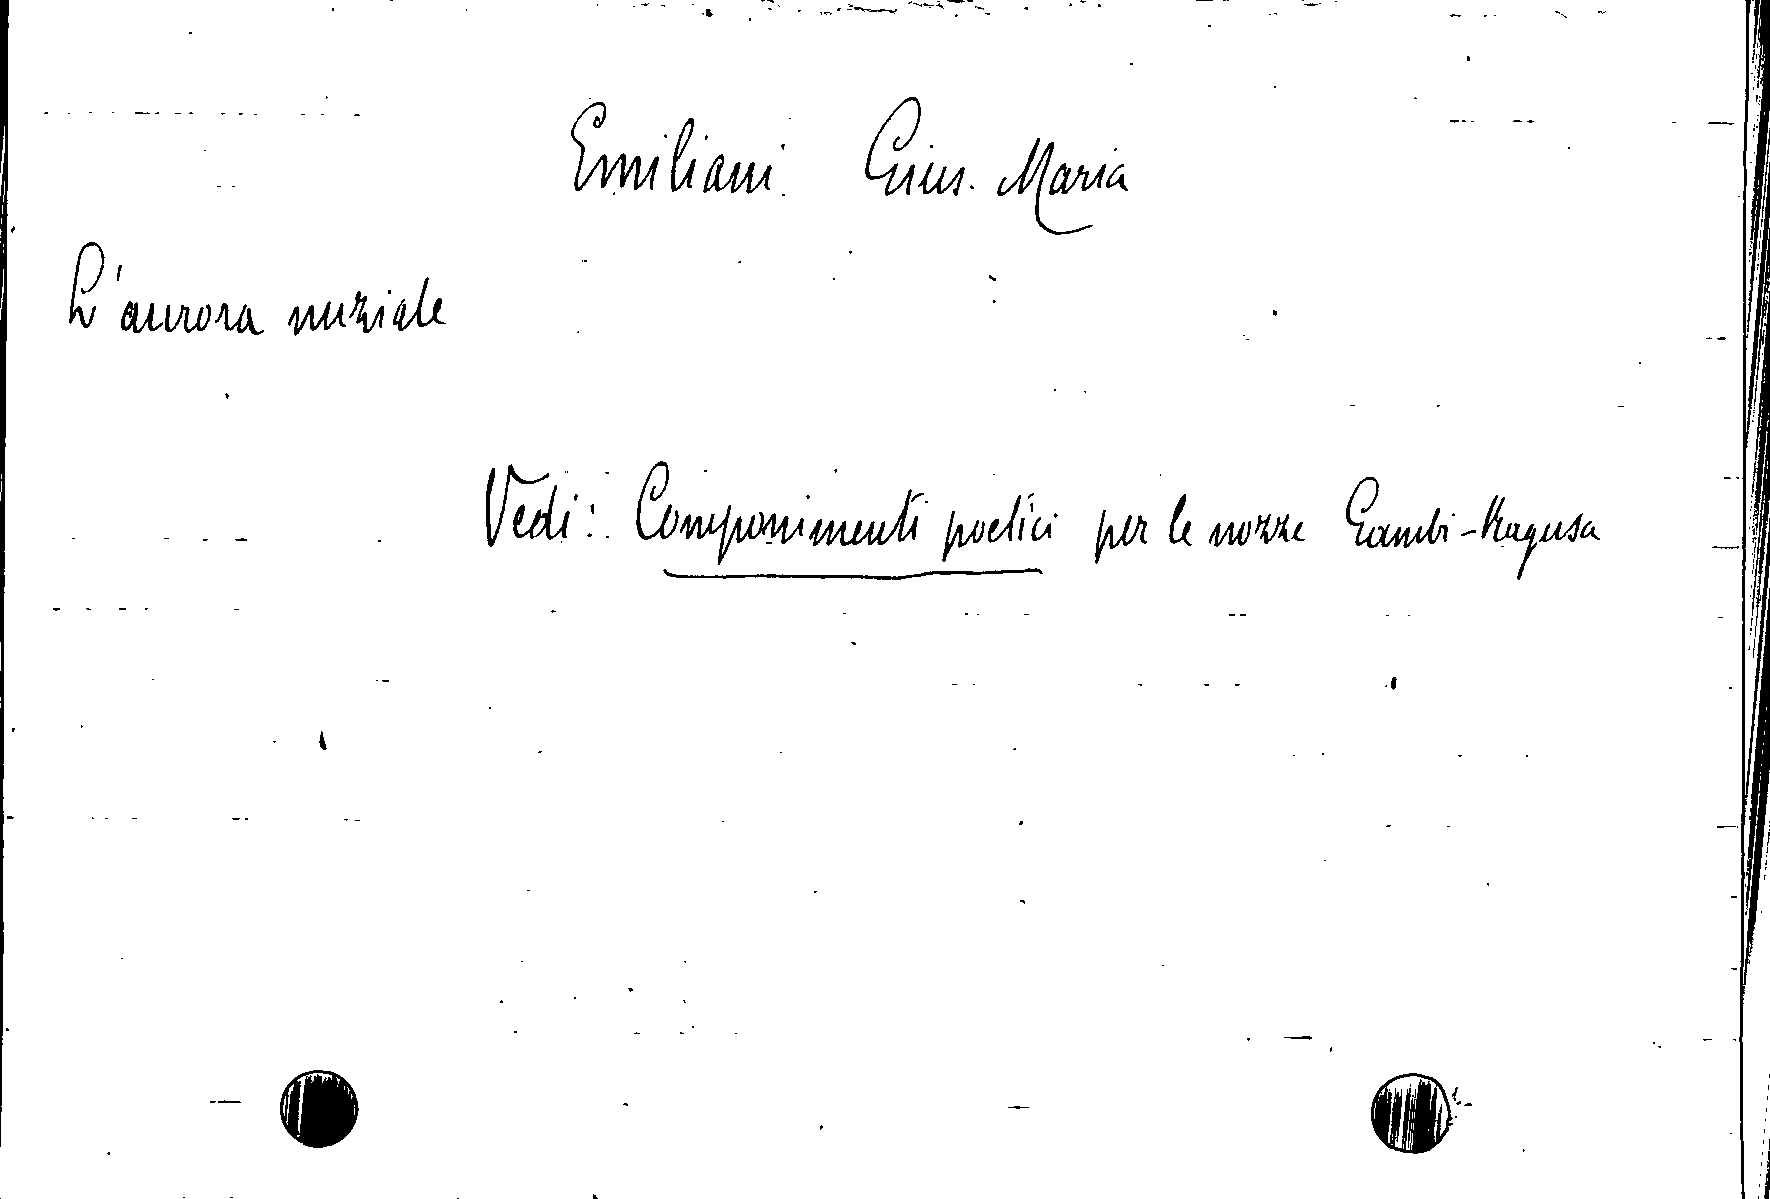 Emiliani Gius. Maria
L'aurora nuziale
Vedi: Componimenti poetici per le nozze Gambi-Ragusa